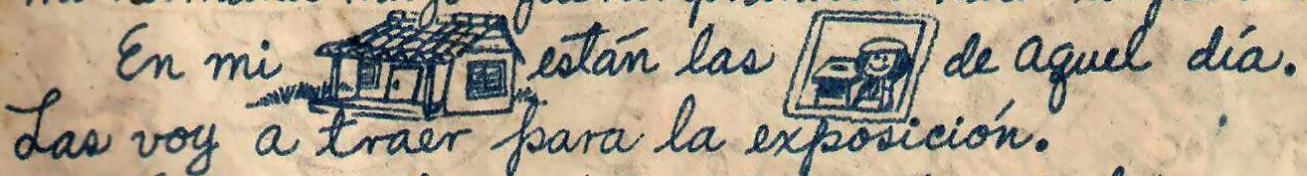 En mi están las de aquel día.
Las voy a traer para la exposición.